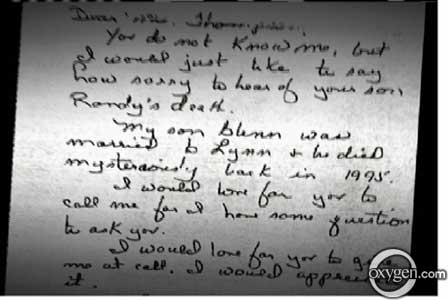 Dear Mrs. Thompson,
You do not know me, but
I would just like to say
how sorry to hear of your son
Randy's death.
My son Glenn was
married to Lynn & he died
mysteriously back in 1995.
I would love for you to
call me for I have some question
to ask you.
I would love for you to give
me at call. I would appreciate
it.
oxygen.com